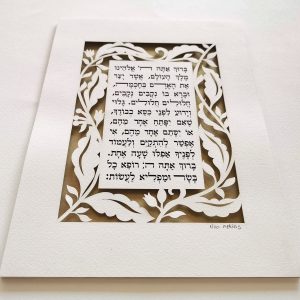 ברוך אתה ה' אלהינו
מלך העולם, אשר יצר
את האדם בחכמה,
וברא בו נקבים נקבים,
חלולים חלולים. גלוי
וידוע לפני כסא כבודך,
שאם יפתח אחד מהם,
או יסתם אחד מהם, אי
אפשר להתקיים ולעמוד
לפניך אפילו שעה אחת.
ברוך אתה ה', רופא כל
בשר ומפליא לעשות: